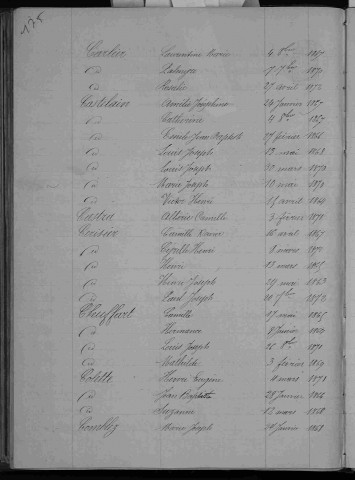 135
Carlier Laurentine Marie 4 8bre 1867
id Palmyre 17 7bre 1870
id Rosalie 27 avril 1872
Castelain Amélie Joséphine 24 janvier 1857
id Catherine 4 8bre 1857
id Emile Jean Baptiste 27 février 1866
id Louis Joseph 13 mai 1868
id Louis Joseph 30 mars 1870
id Marie Joseph 10 mai 1870
id Victor Henri 15 avril 1860
Castra Albane Camille 3 février 1870
Cuisier Camille Xavier 26 avril 1867
id Cyrille Henri 8 mars 1870
id Henri 13 mars 1865
id Henri Joseph 29 mai 1863
id Paul Joseph 20 7bre 1872
Chuffart Camille 17 mai 1865
id Hermance 8 janvier 1860
id Louis Joseph 26 8bre 1870
id Mathilde 3 février 1869
Colette Henri Eugène 4 mars 1871
id Jean Baptiste 28 janvier 1866
id Suzanne 13 mars 1868
Comblez Marie Joseph 24 janvier 1868